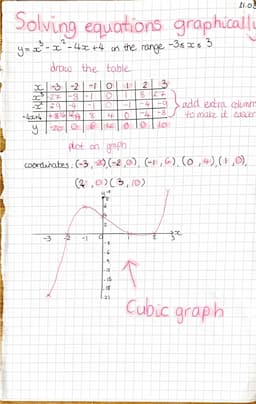 11.03
Solving equations graphically
y=x³-x²-4x+4 on the range -3≤x≤3
draw the table
x -3 -2 -1 0 1 2 3
x³ -27 -8 -1 0 1 8 27
-4 -1 0 -1 -4 -9 add extra columns
-4x+4 8 4 0 -4 -8 to make it easier
y -20 0 6 0 0 10
plot on graph
coordinates: (-3,-20)(-2,0), (-1,6), (0,4), (1,0),
(2,0)(3,10)
x
-3 -2 -1 1 2 3
Cubic graph